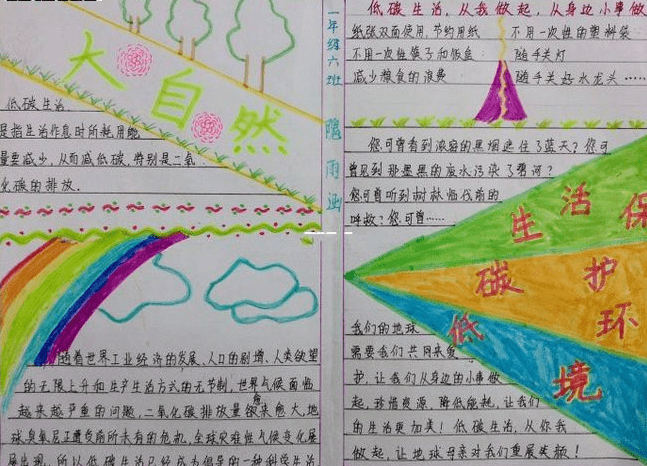 大自然
低碳生活
是指生活作息时所耗用能
量要减少，从而减低碳，特别是二氧
化碳的排放．
一年级六班
雨涵
低碳生活，从我做起，从身边小事做
纸张双面使用，节约用纸
不用一次性的塑料袋
不用一次性筷子和饭盒
随手关灯
减少粮食的浪费
随手关好水龙头……
您可曾看到浓密的黑烟遮住了蓝天？您可
曾见到那墨黑的废水污染了碧河？
您可曾听到树林临伐前的
呼救？您可曾……
生活保
碳护
低环
境
随着世界工业经济的发展、人口的剧增、人类欲望
的无限上升和生产生活方式的无节制，世界气候面临
越来越严重的问题，二氧化碳排放量愈来愈大，地
球臭氧层正遭受前所未有的危机，全球灾难性气候变化屡
屡出现，所以低碳生活已经成为倡导的一种科学生活
我们的地球
需要我们共同来爱
护，让我们从身边的小事做
起，珍惜资源、降低能耗，让我们
的生活更加美！低碳生活，从你我
做起，让地球母亲对我们重展笑颜！